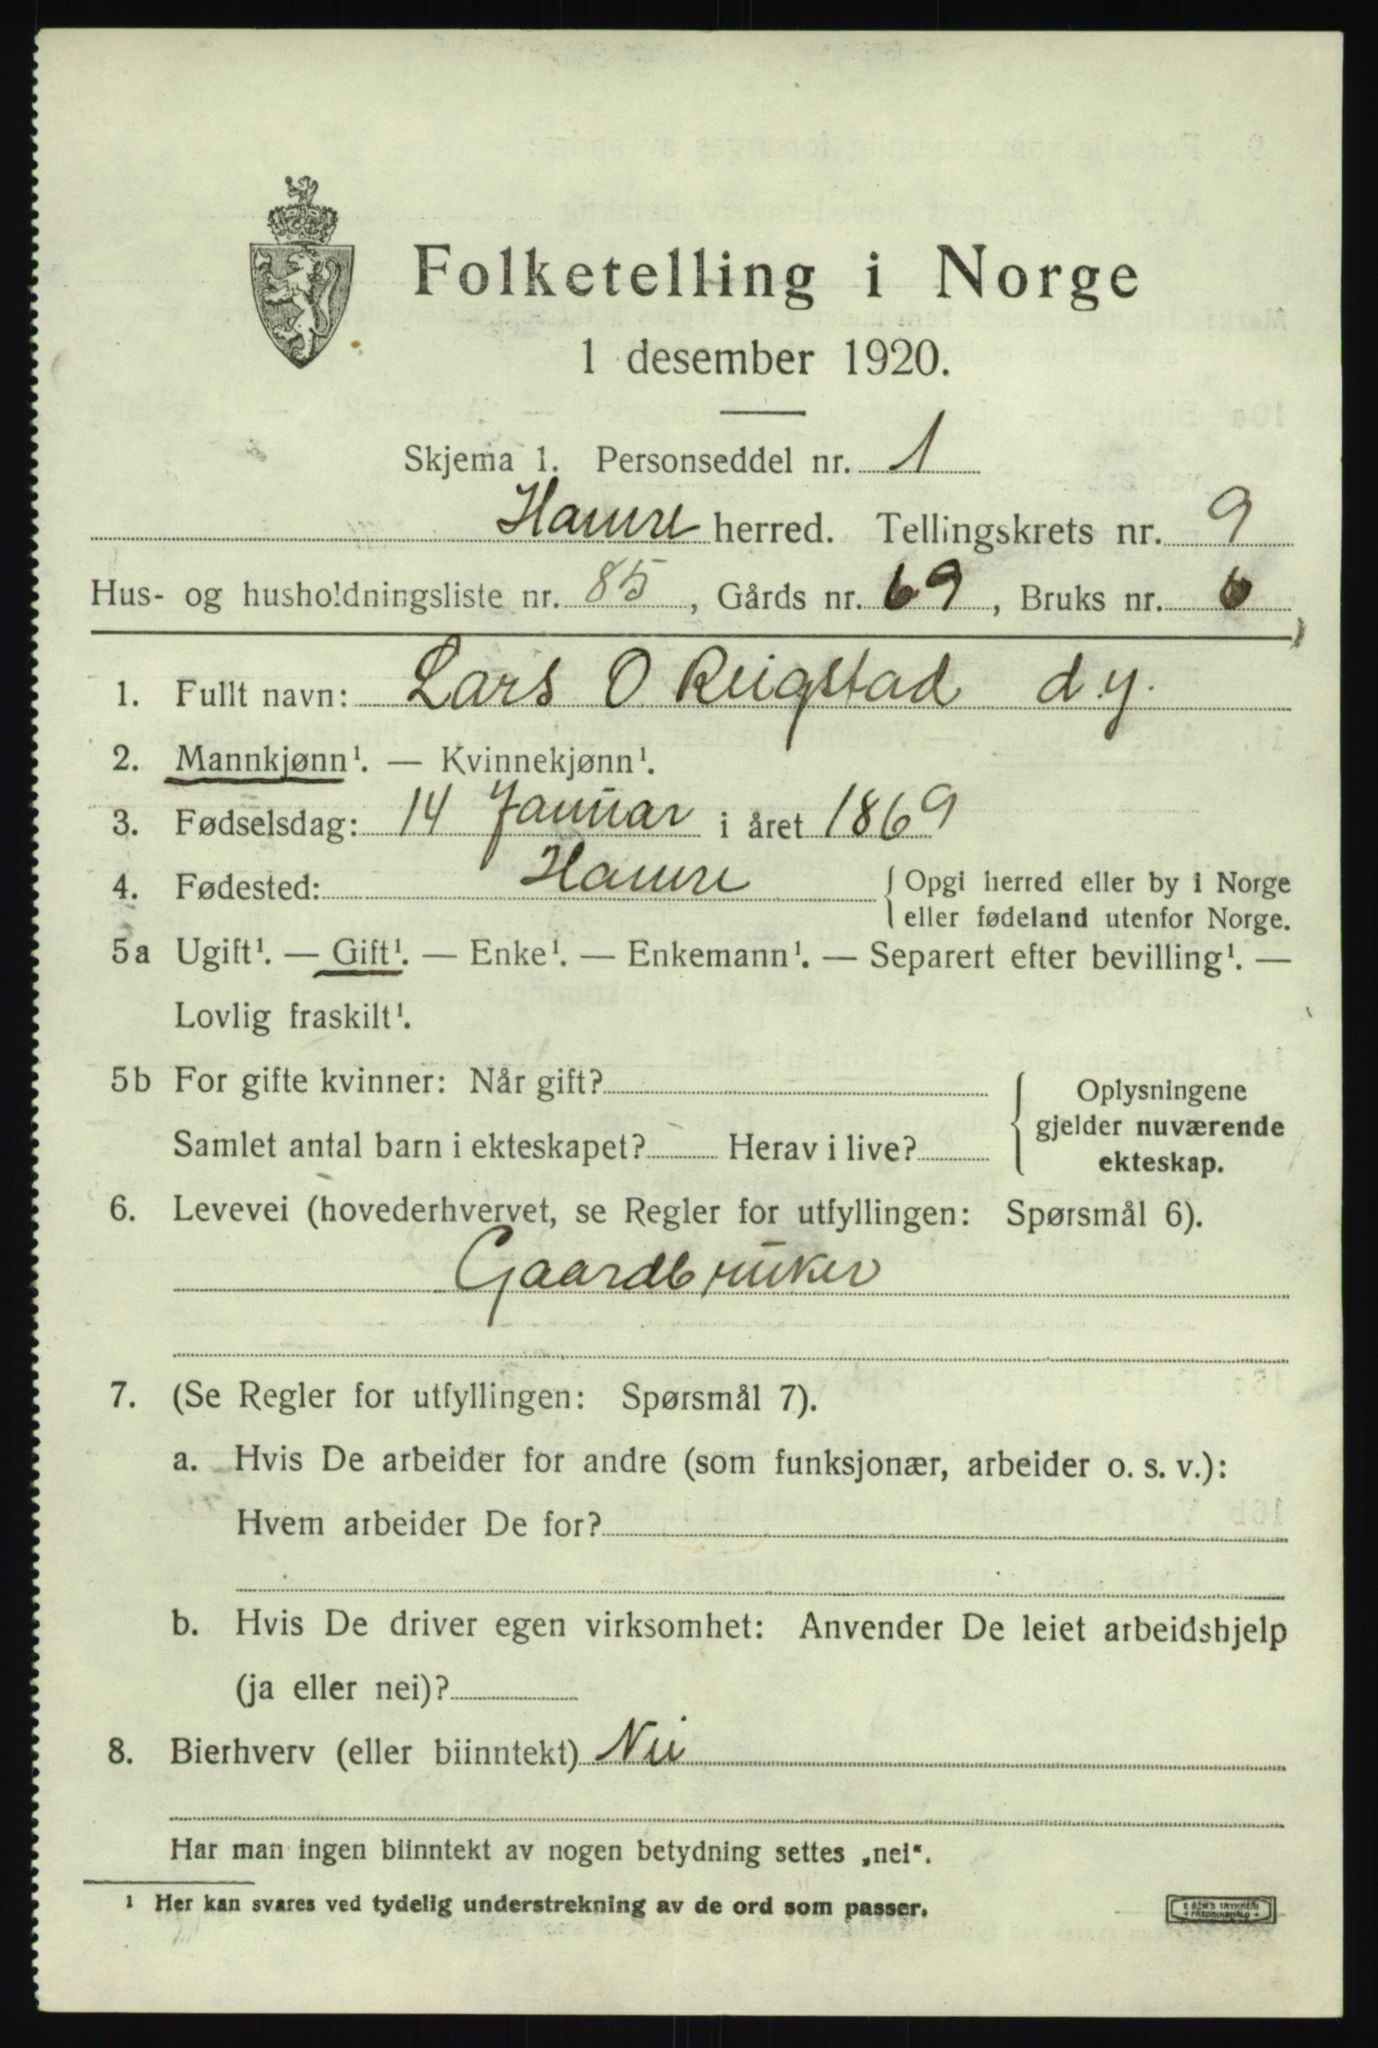 Folketelling i Norge
1 desember 1920.
Skjema 1. Personseddel nr. 1
Hamre herred. Tellingskrets nr. 9
Hus- og husholdningsliste nr. 85, Gårds nr. 69, Bruks nr. 6
1. Fullt navn: Lars O Reigstad d.y.
2. Mannkjønn¹. — Kvinnekjønn¹.
3. Fødselsdag: 14 Januar i året 1869
4. Fødested: Hamre { Opgi herred eller by i Norge
eller fødeland utenfor Norge.
5a Ugift¹. — Gift¹. — Enke¹. — Enkemann¹. — Separert efter bevilling¹. —
Lovlig fraskilt¹.
5b For gifte kvinner: Når gift? { Oplysningene
gjelder nuværende
Samlet antal barn i ekteskapet? Herav i live? ekteskap.
6. Levevei (hovederhvervet, se Regler for utfyllingen: Spørsmål 6).
Gaardbruker
7. (Se Regler for utfyllingen: Spørsmål 7).
a. Hvis De arbeider for andre (som funksjonær, arbeider o. s. v.):
Hvem arbeider De for?
b. Hvis De driver egen virksomhet: Anvender De leiet arbeidshjelp
(ja eller nei)?
8. Bierhverv (eller biinntekt) Nei
Har man ingen biinntekt av nogen betydning settes „nei“.
¹ Her kan svares ved tydelig understrekning av de ord som passer.